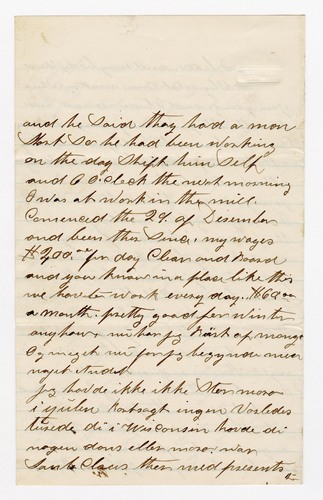 and he said thay had a man
Short So he had been working
on the day Shift him Self
and 6 O.clock the next morning
I was at work in the mill.
Comenced the 29 of Desember
and been ther Since, my wages
$2,00 per day Clear and Board
and you know in a place like this
we have to work every day. $60 00
a month. pretty good for Winter
anyhow,
Og
noget
Jeg havde ikke ikke Stor moro
i ingen
i Wisconsin havde di
nogen dans eller moro. war
Santa Claus ther med presents